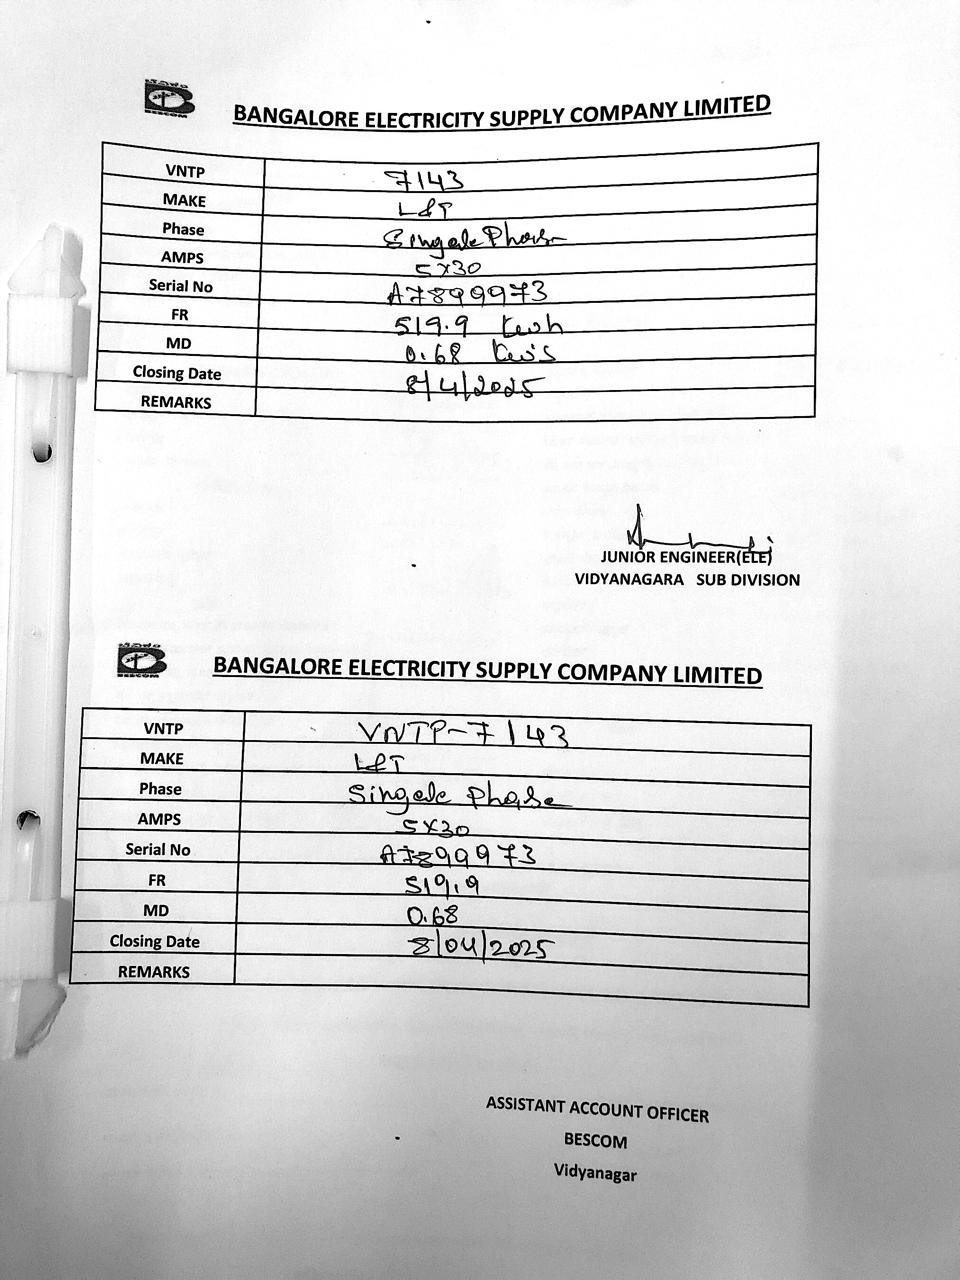 BESCOM
BANGALORE ELECTRICITY SUPPLY COMPANY LIMITED
VNTP 7143
MAKE L&T
Phase Singale Phase
AMPS 5x30
Serial No A7899973
FR 519.9 kwh
MD 0.68 kw's
Closing Date 8/4/2025
REMARKS
JUNIOR ENGINEER(ELE)
VIDYANAGARA SUB DIVISION
BESCOM
BANGALORE ELECTRICITY SUPPLY COMPANY LIMITED
VNTP VNTP-7143
MAKE L&T
Phase Singale phase
AMPS 5x30
Serial No A7899973
FR 519.9
MD 0.68
Closing Date 8/04/2025
REMARKS
ASSISTANT ACCOUNT OFFICER
BESCOM
Vidyanagar